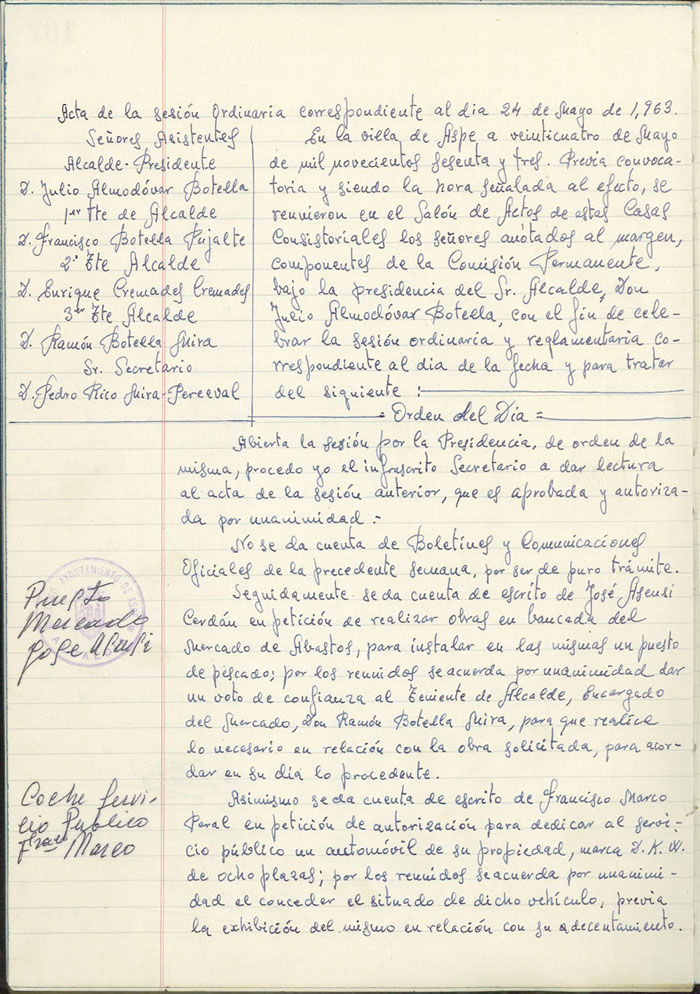 Acta de la sesión Ordinaria correspondiente al dia 24 de Mayo de 1,963.
Señores Asistentes
Alcalde-Presidente
D. Julio Almodóvar Botella
1er Tte de Alcalde
D. Francisco Botella Pujalte
2º Tte Alcalde
D. Enrique Cremades Cremades
3er Tte Alcalde
D. Ramón Botella Mira
Sr. Secretario
D. Pedro Rico Mira-Perceval
En la villa de Aspe a veinticuatro de Mayo
de mil novecientos sesenta y tres. Previa convoca-
toria y siendo la hora señalada al efecto, se
reunieron en el Salón de Actos de estas Casas
Consistoriales los señores anotados al margen,
componentes de la Comisión Permanente,
bajo la presidencia del Sr. Alcalde, Don
Julio Almodóvar Botella, con el fin de cele-
brar la sesión ordinaria y reglamentaria co-
rrespondiente al dia de la fecha y para tratar
del siguiente :
= Orden del Dia =
Abierta la sesión por la Presidencia, de orden de la
misma, procedo yo el infrascrito Secretario a dar lectura
al acta de la sesión anterior, que es aprobada y autoriza-
da por unanimidad :-
No se da cuenta de Boletines y Comunicaciones
Oficiales de la precedente semana, por ser de puro trámite.
Puesto
Mercado
Jose Asensi
AYUNTAMIENTO DE
Seguidamente se da cuenta de escrito de José Asensi
Cerdán en petición de realizar obras en bancada del
Mercado de Abastos, para instalar en las mismas un puesto
de pescado; por los reunidos se acuerda por unanimidad dar
un voto de confianza al Teniente de Alcalde, Encargado
del Mercado, Don Ramón Botella Mira, para que realice
lo necesario en relación con la obra solicitada, para acor-
dar en su dia lo procedente.
Coche Servi-
cio Publico
Frco Marco
Asimismo se da cuenta de escrito de Francisco Marco
Peral en petición de autorización para dedicar al servi-
cio público un automóvil de su propiedad, marca D.K.W.
de ocho plazas; por los reunidos se acuerda por unanimi-
dad el conceder el situado de dicho vehículo, previa
la exhibición del mismo en relación con su adecentamiento.